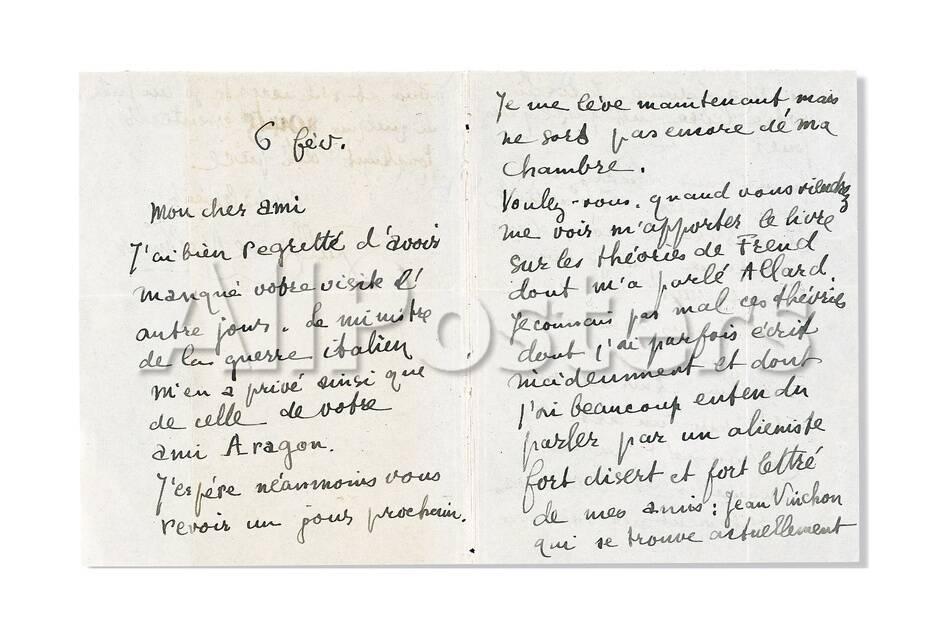 6 fév.
Mon cher ami
J'ai bien regretté d'avoir
manqué votre visite l'
autre jour. Le ministre
de la guerre italien
m'en a privé ainsi que
de celle de votre
ami Aragon.
J'espére néanmoins vous
revoir un jour prochain.
Je me lève maintenant mais
ne sors pas encore de ma
chambre.
Voulez-vous, quand vous viendrez
me voir m'apporter le livre
sur les théories de Freud
dont m'a parlé Allard.
Je connais pas mal ces théories
dont j'ai parfois écrit
incidemment et dont
j'ai beaucoup entendu
parler par un alieniste
fort disert et fort lettré
de mes amis : Jean Vinchon
qui se trouve actuellement
AllPosters